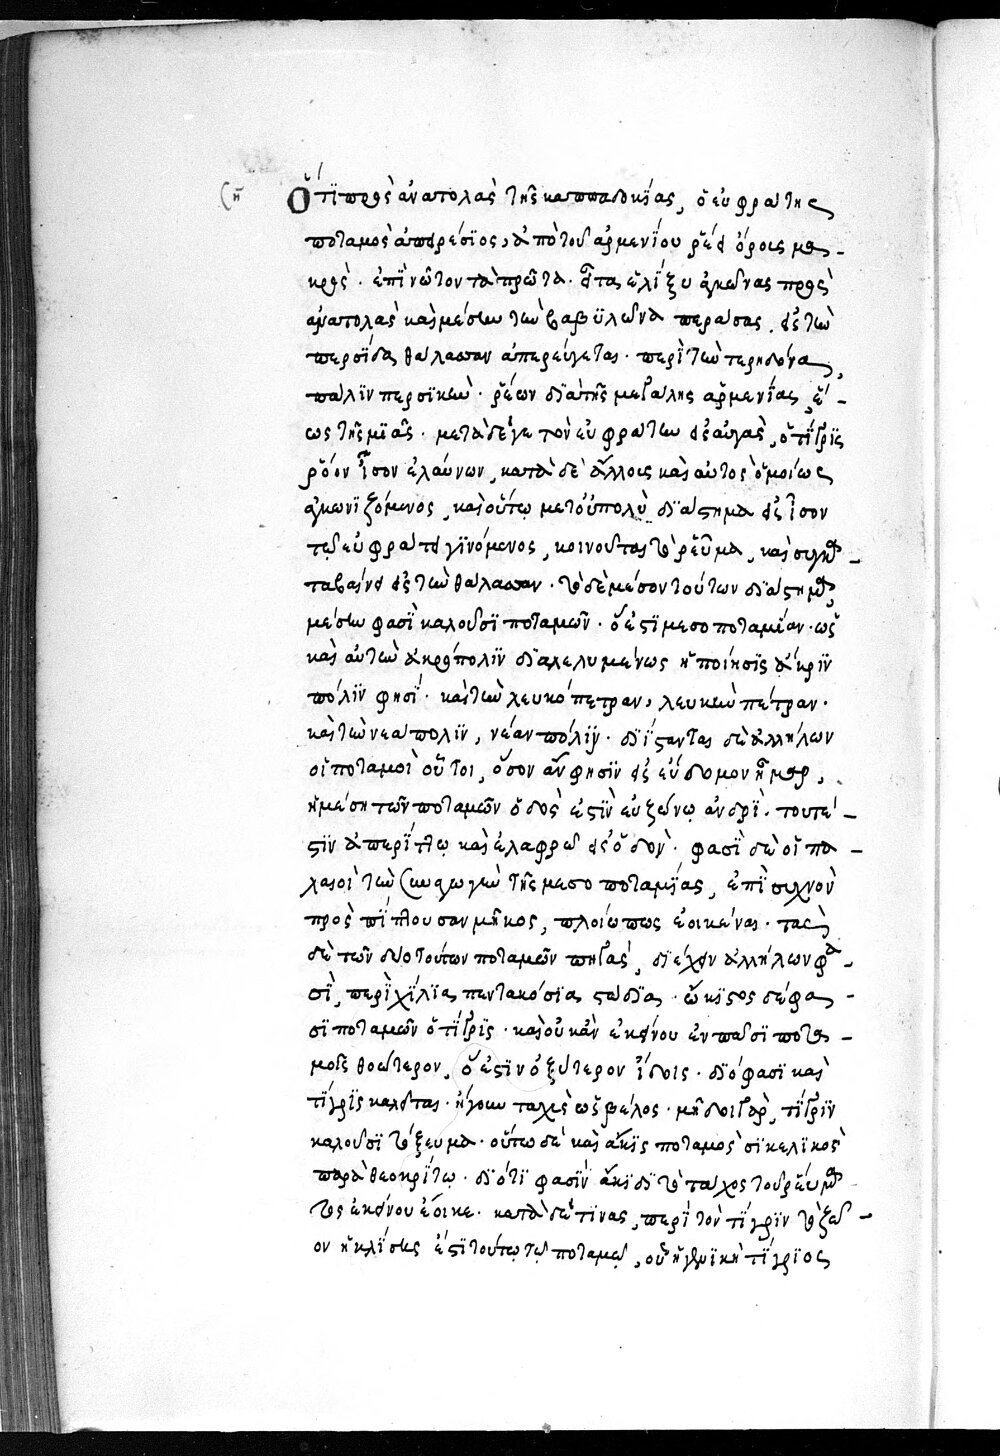 Ὅτι πρὸς ἀνατολὰς τῆς καππαδοκίας, ὁ εὐφράτης
ποταμὸς ἀπειρέσιος, ἀπὸ τοῦ ἀρμενίου ῥεῖ ὄρους μα-
κρὸς. ἐπὶ νῶτον τὰ πρῶτα. εἶτα ἑλίξυ ἀγκῶνας πρὸς
ἀνατολὰς καὶ μέσην τὴν βαβυλῶνα περάσας. εἰς τὴν
περσίδα θάλασσαν ἀπερεύγεται. περὶ τὴν τερηδόνα,
πόλιν περσικὴν. ῥέων διὰ τῆς μεγάλης ἀρμενίας, ἕ-
ως τῆς μιᾶς. μετὰ δέ γε τὸν εὐφράτην εἰς αὐγὰς, ὁ τίγρις
ῥόον ἶσον ἐλαύνων, κατὰ δὲ ἄλλους καὶ αὐτὸς ὁμοίως
ἀγκωνιζόμενος, καὶ οὕτω μετ' οὐ πολὺ διάστημα εἰς ἶσον
τῷ εὐφράτῃ γινόμενος, κοινοῦται τὸ ῥεῦμα, καὶ συγκα-
ταβαίνει εἰς τὴν θάλασσαν. τὸ δὲ μέσον τούτων διάστημα,
μέσην φασὶ καλοῦσι ποταμῶν. ὅ ἐστι μεσοποταμίαν. ὡς
καὶ αὐτὴν ἀκρόπολιν διαλελυμένως ἡ ποίησις ἄκριν
πόλιν φησί. καὶ τὴν λευκόπετραν, λευκὴν πέτραν.
καὶ τὴν νεάπολιν, νέαν πόλιν. διίστανται δὲ ἀλλήλων
οἱ ποταμοὶ οὗτοι, ὅσον ἄν φησὶν εἰς εὕδομον ἦμαρ,
ἡ μέση τῶν ποταμῶν ὁδὸς ἐστὶν εὐζώνῳ ἀνδρὶ. τουτέ-
στιν ἀπερίττῳ καὶ ἐλαφρῷ εἰς ὁδὸν. φασὶ δὲ οἱ πα-
λαιοὶ τὴν συναγωγὴν τῆς μεσοποταμίας, ἐπὶ συχνὸν
προσπίπτουσαν μῆκος, πλοίω πως ἐοικέναι. τὰς
δὲ τῶν δύο τούτων ποταμῶν πηγὰς, διέχειν ἀλλήλων φα-
σὶ, περὶ χίλια πεντακόσια στάδια. ὤκιστος δέ φα-
σι ποταμῶν ὁ τίγρις. καὶ οὐκ ἂν ἐκείνου ἐν πᾶσι ποτα-
μοῖς θοώτερον, ὅ ἐστιν ὀξύτερον ἴδοις. διό φασι καὶ
τίγρις καλεῖται. ἤγουν ταχὺς ὡς βέλος. μῆδοι γὰρ, τίγριν
καλοῦσι τόξευμα. οὕτω δὲ καὶ ἄκις ποταμὸς σικελικὸς
παρὰ θεοκρίτῳ. διότι φασὶν ἀκίδι τὸ τάχος τοῦ ῥεύμα-
τος ἐκείνου ἔοικε. κατὰ δέ τινας, περὶ τὸν τίγριν τὸ ζῶ-
ον ἡ κλίσις ἐστὶ τούτῳ τῷ ποταμῷ, οὗ ἡ γενικὴ τίγριος